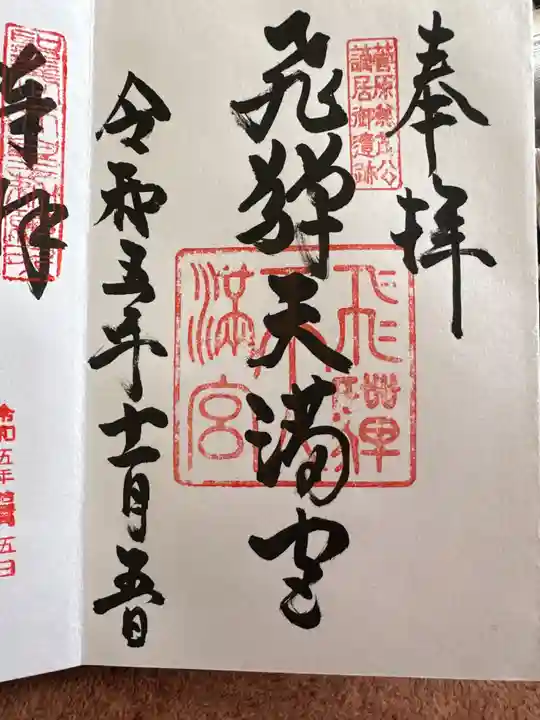 奉拝
菅原兼茂公
謫居御遺跡
飛騨天満宮
飛騨
天
満宮
令和五年十一月五日
奉拝
令和五年
五日